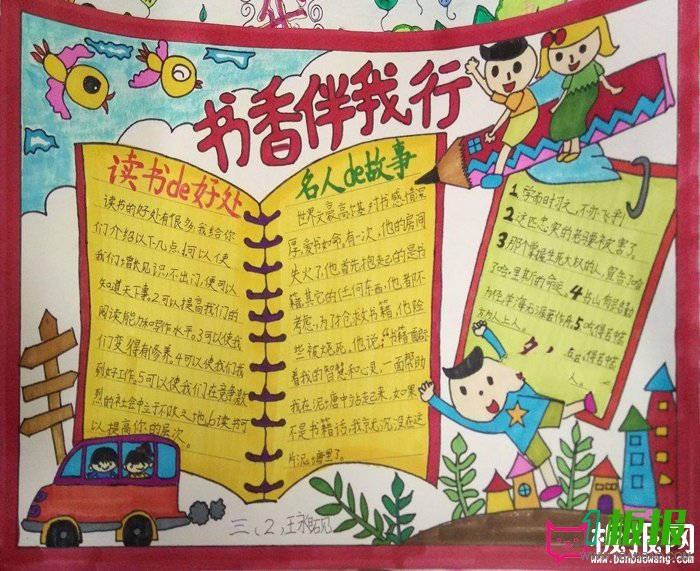 书香伴我行
读书de好处
读书的好处有很多,我给你
们介绍以下几点,1可以使
我们增长见识,不出门,便可以
知道天下事。2可以提高我们的
阅读能力和写作水平。3可以使我
们变得有修养。4可以使我们找
到好工作。5可以使我们在竞争激
烈的社会中立于不败之地。6读书可
以提高你的层次。
名人de故事
世界文豪高尔基对书感情深
厚,爱书如命。有一次,他的房间
失火了,他首先抱起的是书
籍,其它的任何东西,他都不
考虑,为了抢救书籍,他险
些被烧死。他说:"书籍一面启示
着我的智慧和心灵,一面帮助
我在泥塘中站起来,如果
不是书籍话,我就沉没在这
片泥塘里了。
1 学而时习之,不亦飞乎!
2 这匹忠实的老骥被害了。
3 那个掌握生死大权的人,宣告了哈
了哈·里斯的命运。4 书山有路勤
为径,学海无涯苦作舟。5 吃得苦中苦
方为人上人。
三、(2)王
板报网
www.banbaowang.com